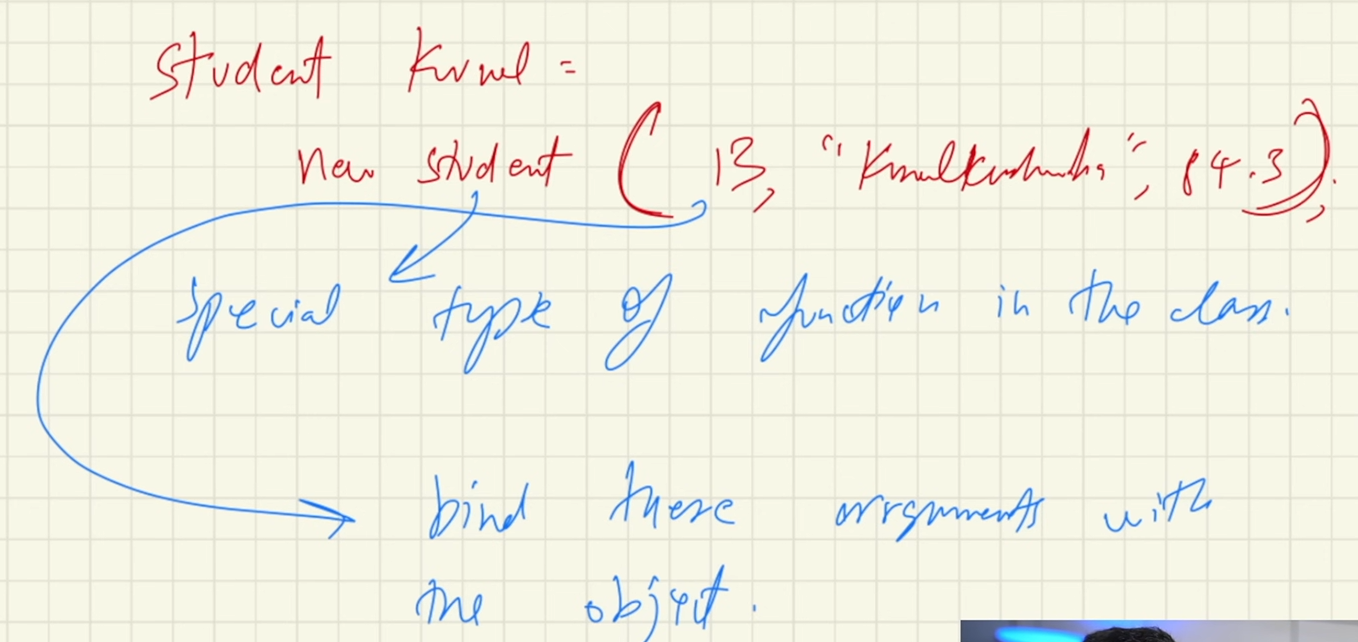 Student Kunal =
new student ( 13, "Kunalkushwaha", 84.3);
special type of function in the class.
bind these arrguments with
the object.